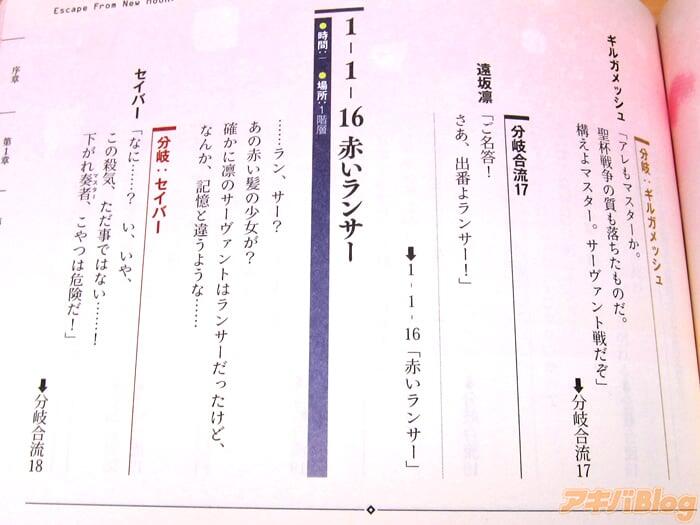 Escape From New Moon
分岐：ギルガメッシュ
ギルガメッシュ
「アレもマスターか。
聖杯戦争の質も落ちたものだ。
構えよマスター。サーヴァント戦だぞ」
➡分岐合流17
分岐合流17
遠坂凛
「ご名答！
さあ、出番よランサー！」
➡1-1-16「赤いランサー」
1-1-16 赤いランサー
●時間：− ●場所：1階層
……ラン、サー？
あの赤い髪の少女が？
確かに凛のサーヴァントはランサーだったけど、
なんか、記憶と違うような……
分岐：セイバー
セイバー
「なに……？ い、いや、
この殺気、ただ事ではない……！
下がれ奏者、こやつは危険だ！」
マスター
➡分岐合流18
序章
第1章
アキバBlog